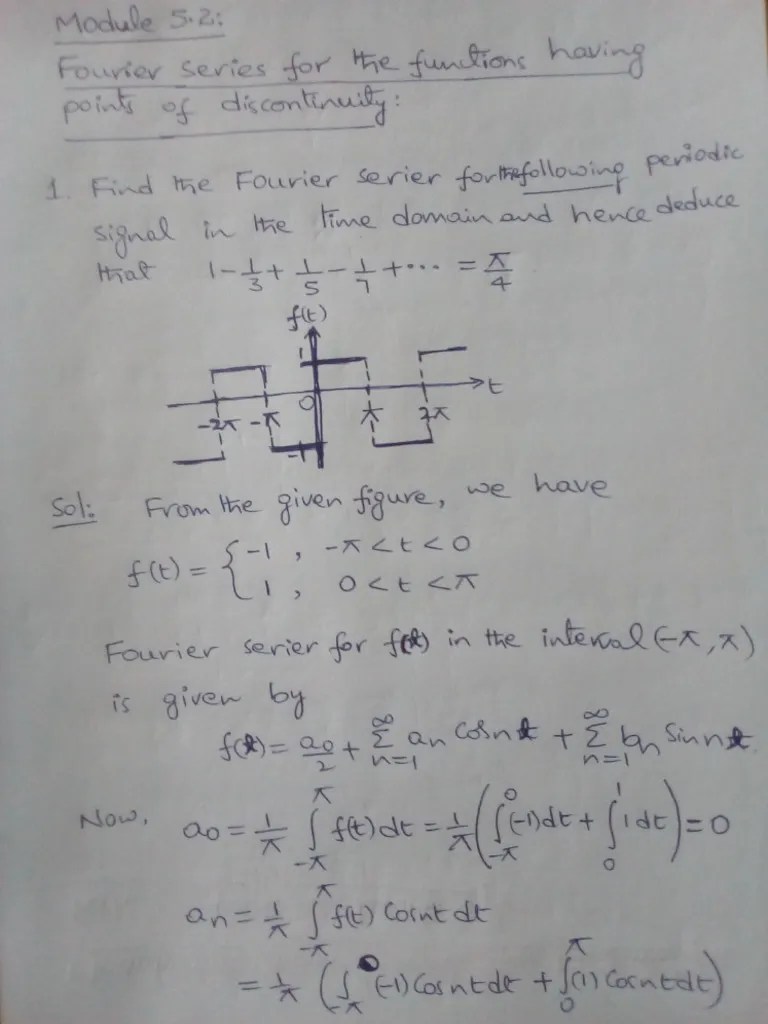 Module 5.2:
Fourier series for the functions having
points of discontinuity:
1. Find the Fourier serier for the following periodic
signal in the time domain and hence deduce
that 1 - 1/3 + 1/5 - 1/7 + ... = π/4
f(t)
1
t
0
-2π -π π 2π
-1
Sol: From the given figure, we have
f(t) = { -1 , -π < t < 0
1 , 0 < t < π
Fourier serier for f(t) in the interval (-π, π)
is given by
f(t) = a0/2 + ∑_{n=1}^{∞} an cosnt + ∑_{n=1}^{∞} bn sinnt
Now, a0 = 1/π ∫_{-π}^{π} f(t) dt = 1/π ( ∫_{-π}^{0} (-1) dt + ∫_{0}^{1} 1 dt ) = 0
an = 1/π ∫_{-π}^{π} f(t) cosnt dt
= 1/π ( ∫_{-π}^{0} (-1) cosnt dt + ∫_{0}^{π} (1) cosnt dt )